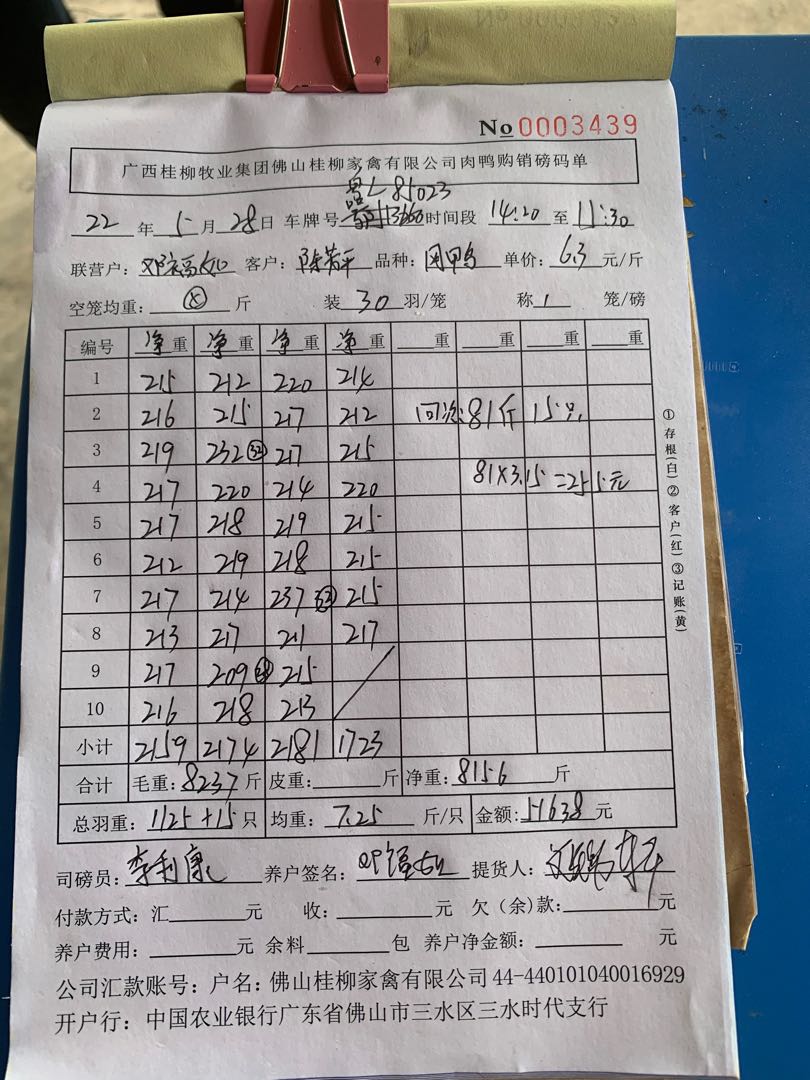 No 0003439
广西桂柳牧业集团佛山桂柳家禽有限公司肉鸭购销磅码单
粤L 85023
22 年 5 月 28 日 车牌号 时间段 14:20 至 11:30
联营户: 邓福如 客户: 陈芳平 品种: 肉鸭 单价: 6.3 元/斤
空笼均重: 斤 装 30 羽/笼 称 1 笼/磅
编号 净重 净重 净重 净重 重 重 重 重
1 215 212 220 214
2 216 215 217 212 回沙: 81斤 15只
3 219 232 32 217 215
4 217 220 214 220 81×3.15=255元
5 217 218 219 215
6 212 219 218 215
7 217 214 237 33 215
8 213 217 211 217
9 217 209 215
10 216 218 213
小计 2159 2174 2181 1723
合计 毛重: 8237 斤 皮重: 斤 净重: 8156 斤
总羽重: 1125+15 只 均重: 7.25 斤/只 金额: 51638 元
司磅员: 李利康 养户签名: 提货人:
付款方式: 汇 元 收: 元 欠(余)款: 元
养户费用: 元 余料 包 养户净金额: 元
公司汇款账号: 户名: 佛山桂柳家禽有限公司 44-440101040016929
开户行: 中国农业银行广东省佛山市三水区三水时代支行
①存根(白)②客户(红)③记账(黄)